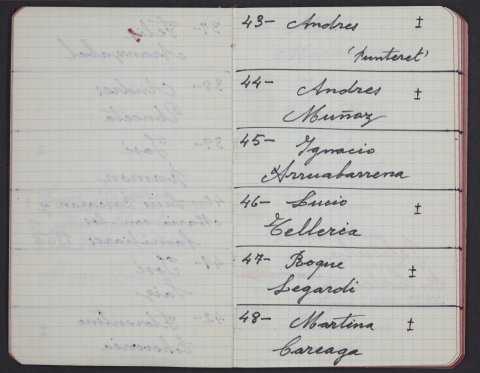 43- Andres ±
'Punteret'
44- Andres ±
Muñoz
45- Ignacio
Arruabarrena
46- Lucio ±
Telleria
47- Roque ±
Legardi
48- Martina ±
Careaga